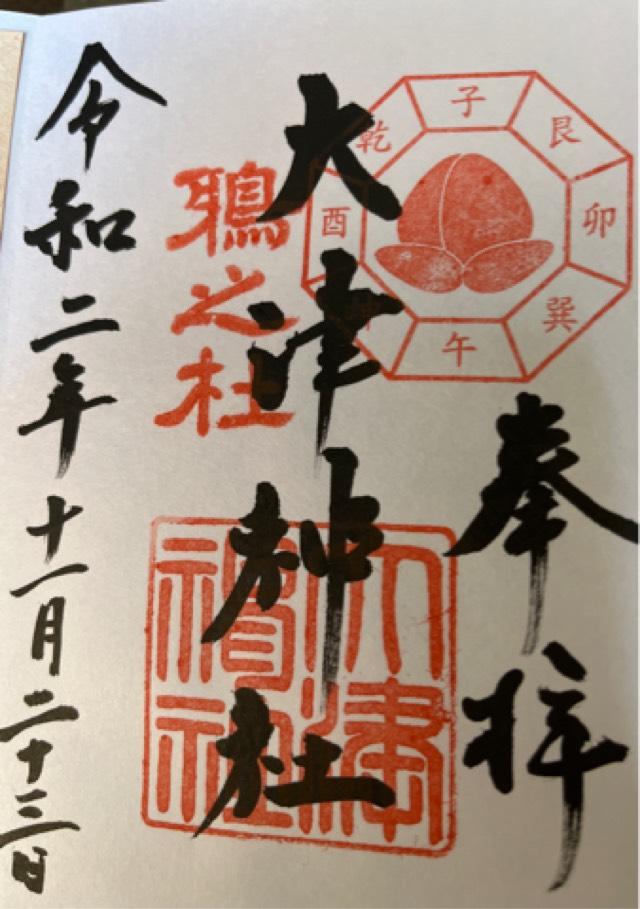 奉拝
子
艮
卯
巽
午
酉
乾
大津神社
之杜
大津
神社
令和二年十一月二十三日